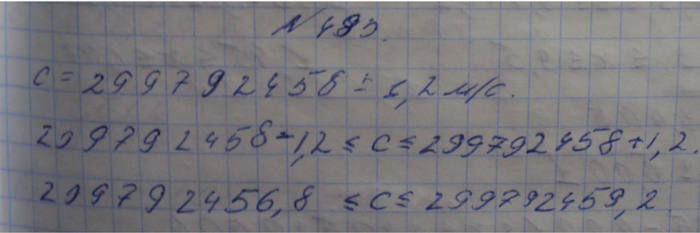 № 485.
c = 299792458 ± 1,2 м/с.
299792458 - 1,2 ≤ c ≤ 299792458 + 1,2.
299792456,8 ≤ c ≤ 299792459,2